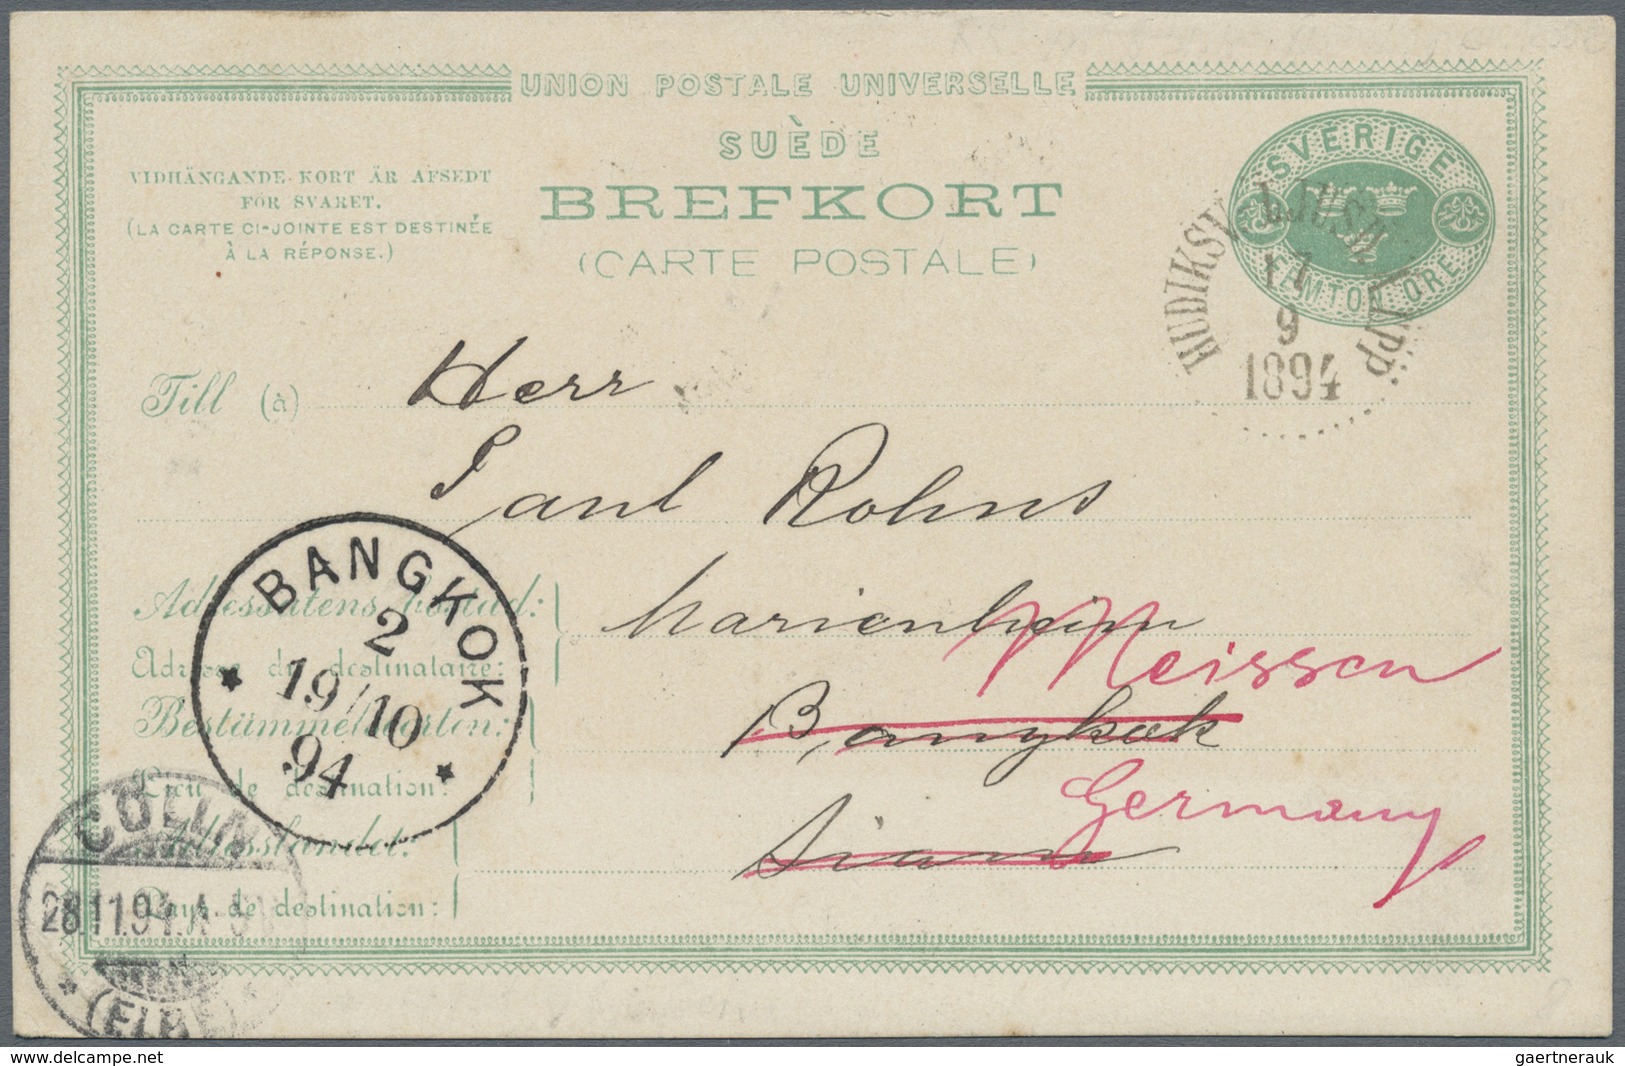 UNION POSTALE UNIVERSELLE
SUÈDE
BREFKORT
(CARTE POSTALE)
VIDHÄNGANDE KORT ÄR AFSEDT
FÖR SVARET.
(LA CARTE CI-JOINTE EST DESTINÉE
À LA RÉPONSE.)
SVERIGE
FEMTON ÖRE
17
9
1894
Till (à)
Herr
Paul Rohns
Adressatens bostad:
Adresse du destinataire:
Marienheim
Meissen
Bestämmelseorten:
Lieu de destination:
Bangkok
Adresslandet:
Pays de destination:
Siam
Germany
BANGKOK
2
19/10
94
CÖLLN
28.11.94.
(ELBE)
gaertnerauk
www.delcampe.net